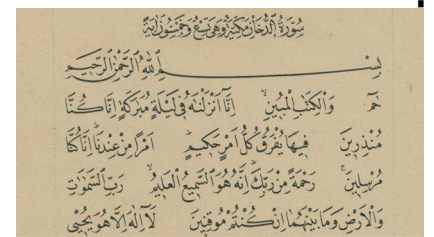 سُورَةُ الدُّخَانِ مَكِّيَّةٌ وَهِيَ تِسْعٌ وَخَمْسُونَ آيَةً
بِسْمِ اللّٰهِ الرَّحْمٰنِ الرَّحِيمِ
حٰمٓ وَالْكِتَابِ الْمُبِينِ اِنَّا اَنْزَلْنَاهُ فِى لَيْلَةٍ مُبَارَكَةٍ اِنَّا كُنَّا
مُنْذِرِينَ فِيهَا يُفْرَقُ كُلُّ اَمْرٍ حَكِيمٍ اَمْرًا مِنْ عِنْدِنَا اِنَّا كُنَّا
مُرْسِلِينَ رَحْمَةً مِنْ رَبِّكَ اِنَّهُ هُوَ السَّمِيعُ الْعَلِيمُ رَبِّ السَّمٰوَاتِ
وَالْاَرْضِ وَمَا بَيْنَهُمَا اِنْ كُنْتُمْ مُوقِنِينَ لَا اِلٰهَ اِلَّا هُوَ يُحْيِى